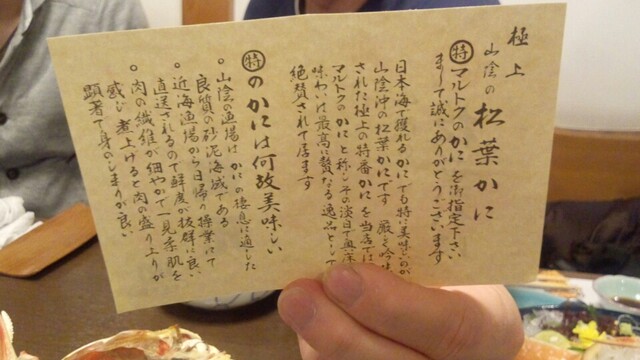 極上
山陰の 松葉かに
㊕マルトクのかにを御指定下さい
まして誠にありがとうございます
日本海で獲れるかにでも特に美味しいのが
山陰沖の松葉かにです 厳を吟味
された極上の特番かにを当店では
マルトクのかにと称しその淡白で奥深
味わいは最高に賛なる逸品として
絶賛されて居ます
㊕のかには何故美味しい
○山陰の漁場は かにの棲息に適した
良質の砂泥海域である
○近海漁場から日帰り操業にて
直送されるので鮮度が抜群に良い
○肉の繊維が細やかで一見柔肌を
感じ 煮上げると肉の盛り上りが
顕著で身のしまりが良い